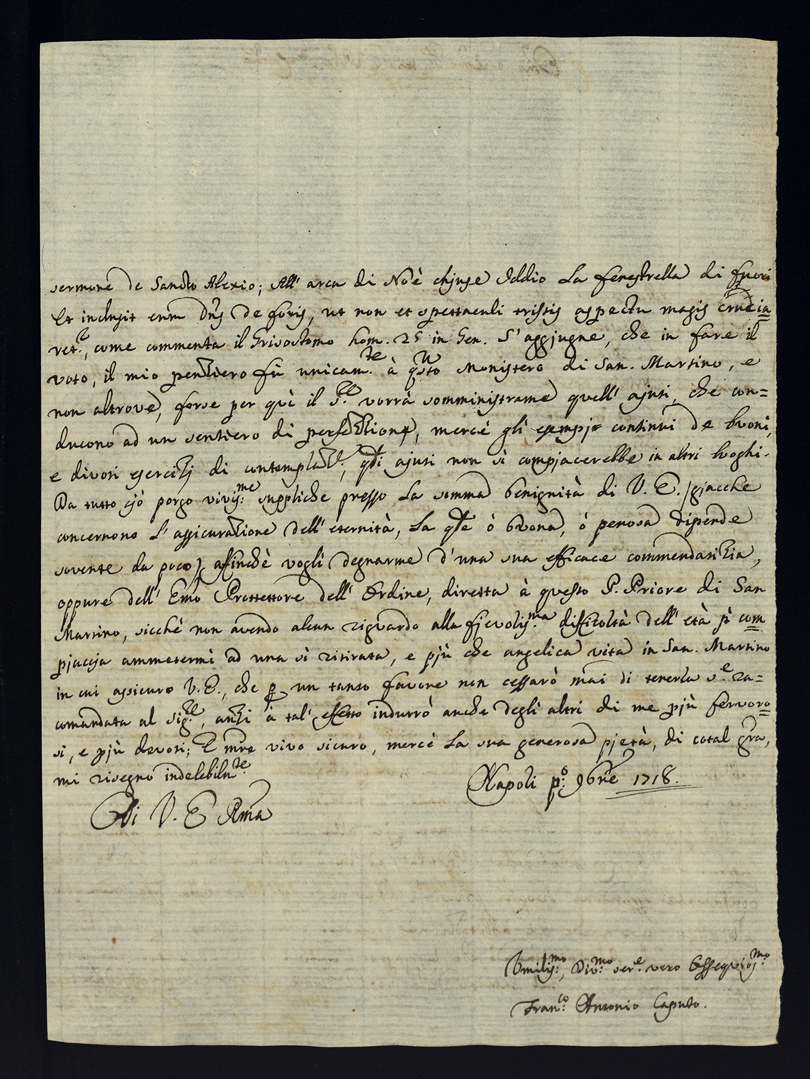 sermone de Sancto Alexio; All' arca di Noè chiuse Iddio la fenestrella di fuori
Et inclusit eum Dñs de foris, ut non et spettaculi tristis aspectu magis crucia=
ret.r, come commenta il Grisostomo hom. 25 in Gen. S'aggiugne, che in fare il
voto, il mio pensiero fù unicam.te à q.sto Monistero di San. Martino, e
non altrove, forse per què il S.re vorrà somministrame quell' ajuti, che con=
ducono ad un sentiero di perfettione, mercè gli esempj continui de buoni,
e divoti esercitj di contemplat.e, q.li ajuti non si compiacerebbe in altri luoghi.
Da tutto ciò porgo viviss.me suppliche presso la somma benignità di V. E. /giacche
concernono l'assicuratione dell' eternità, la q.le ò buona, ò penosa dipende
sovente da poco/ affinchè vogli degnarme d'una sua efficace commendatitia,
oppure dell' Emo Prottettore dell' Ordine, diretta à questo P. Priore di San
Martino, sicchè non avendo alcun riguardo alla fievoliss.ma difficoltà dell' età si com=
piaccia ammetermi ad una sì ritirata, e più che angelica vita in San. Martino
in cui assicuro V. E., che p un tanto favore non cessarò mai di tenerla s.e ra=
comandata al Sig.re, anzi à tal' effetto indurrò anche degli altri di me più fervoro=
si, e più devoti; E mre vivo sicuro, mercè la sua generosa pietà, di cotal gra,
mi risegno indelebilm.te
Napoli p.o 9bre 1718.
Di V. E Rma
Umiliss.mo, Div.mo ser.e vero Ossequios.mo
Fran.co Antonio Caputo.